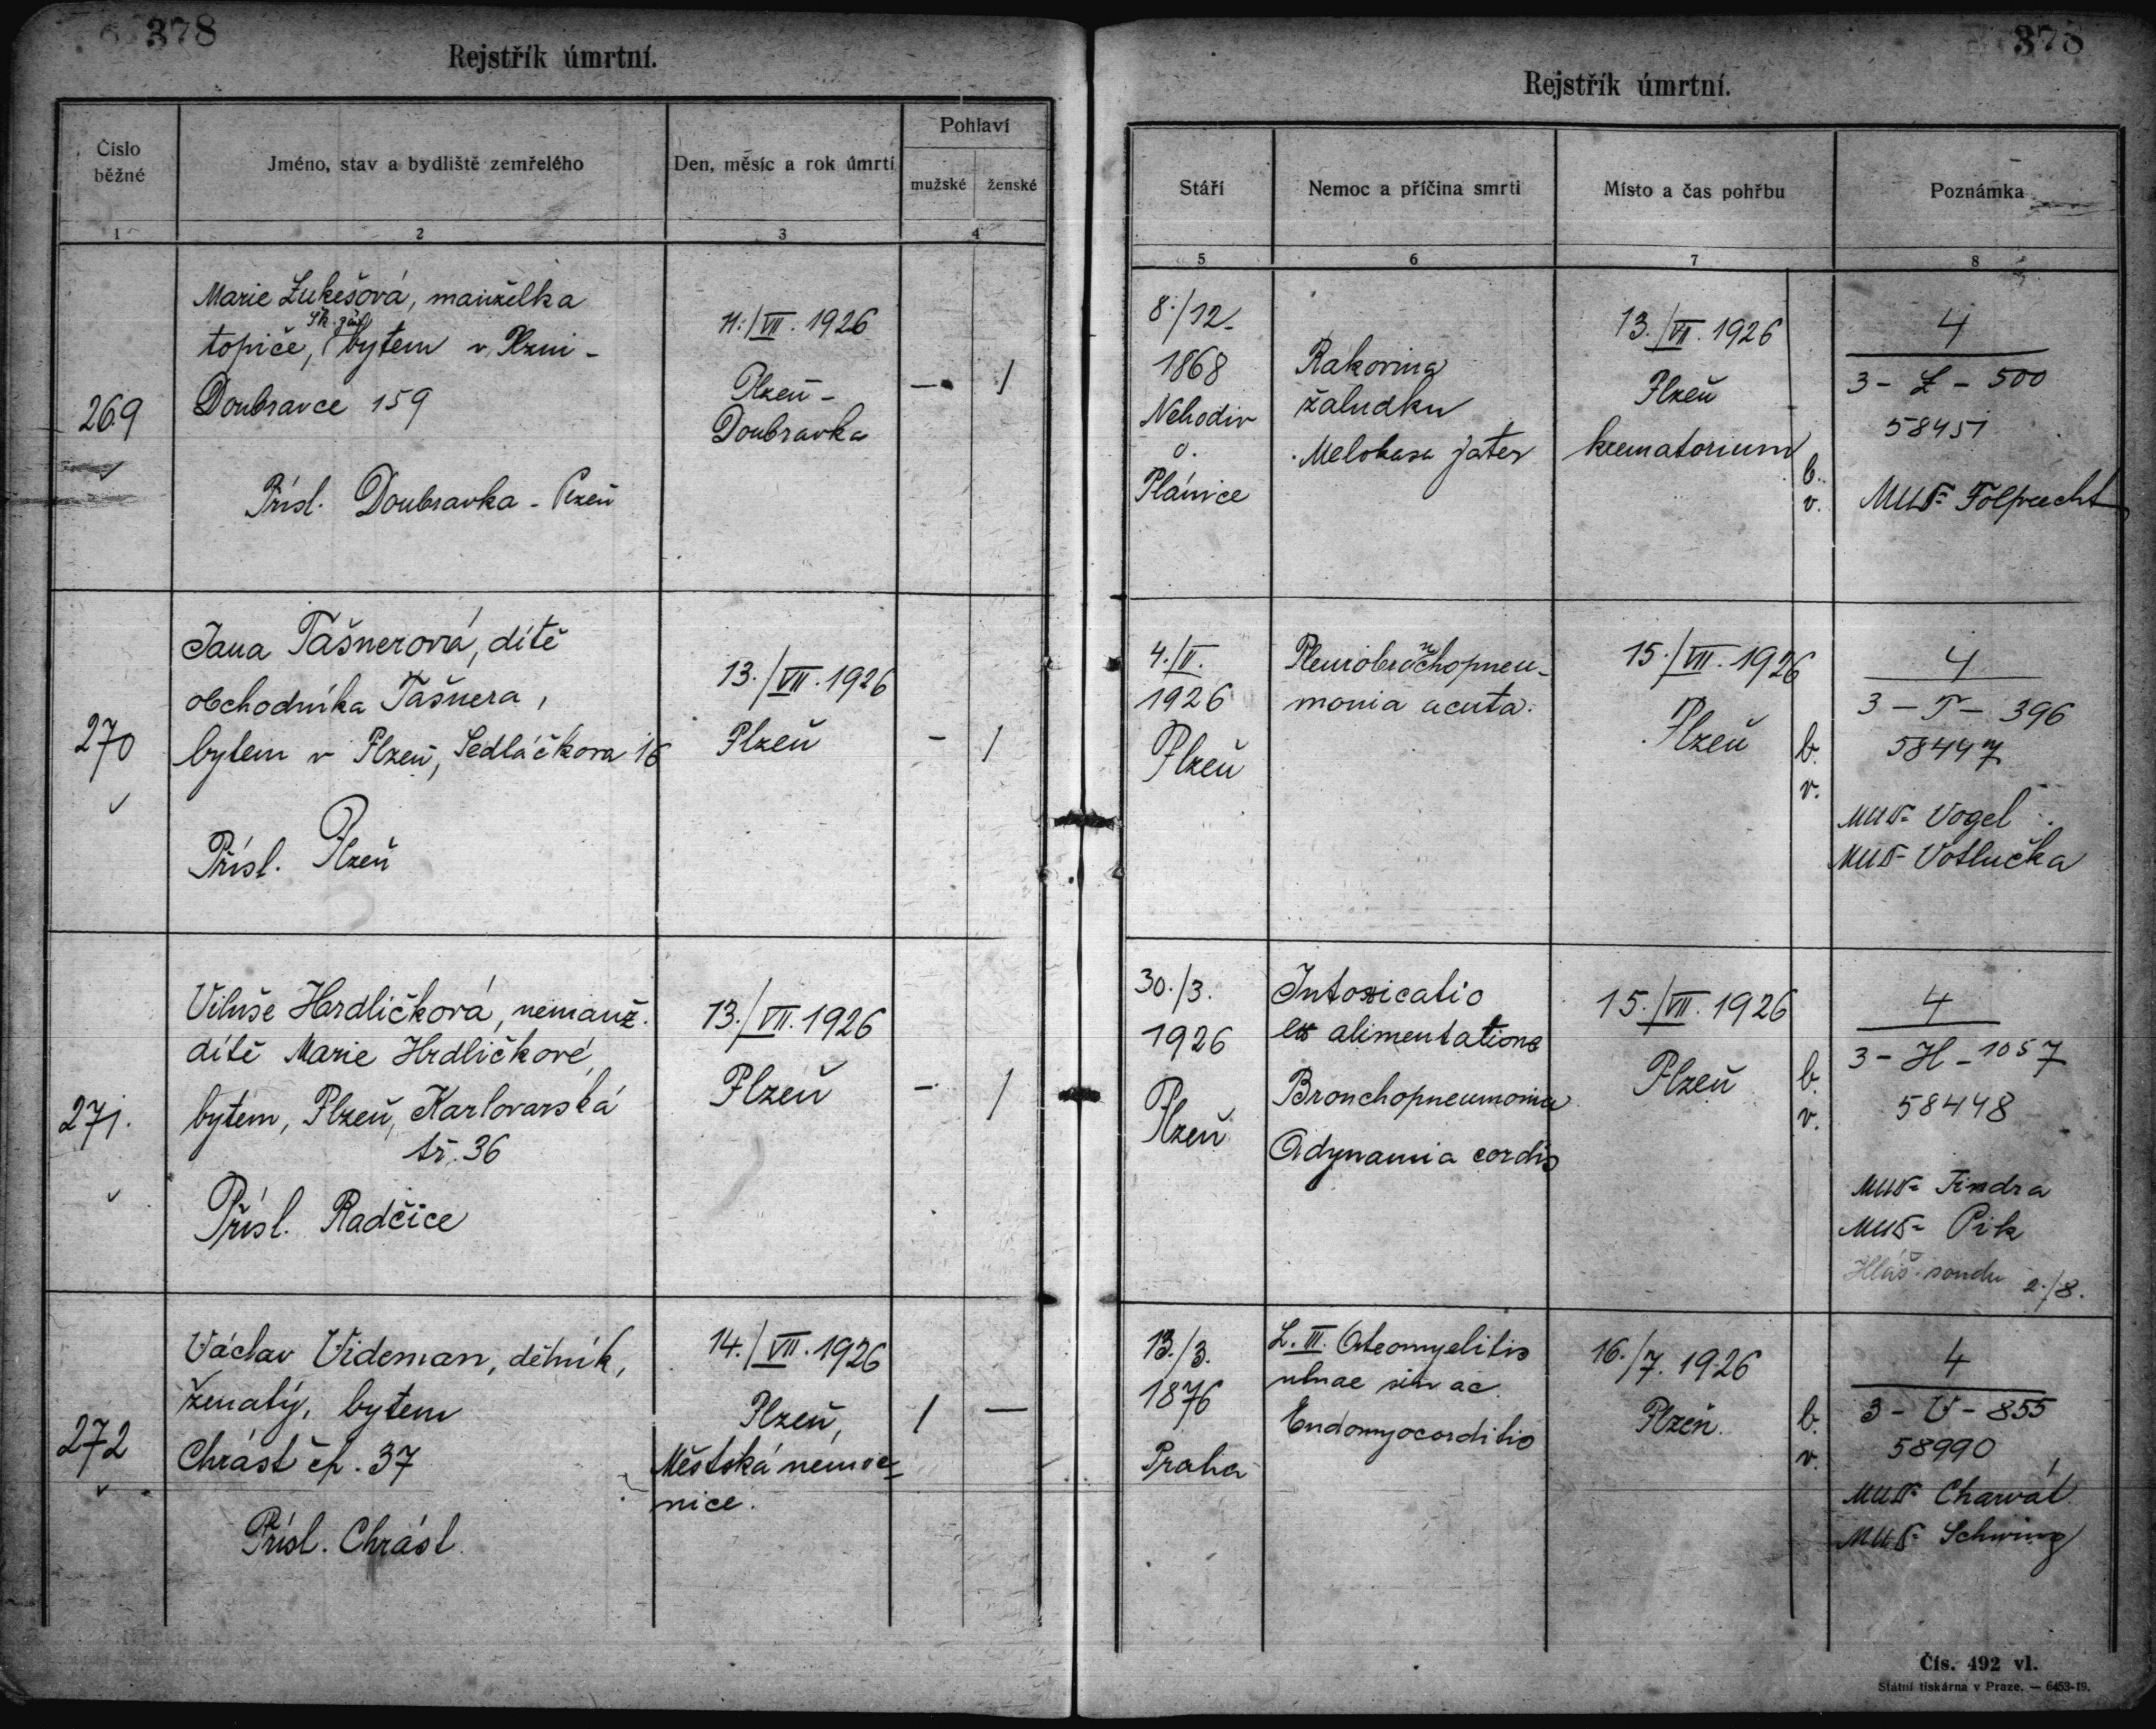 378
Rejstřík úmrtní.
Číslo běžné
Jméno, stav a bydliště zemřelého
Den, měsíc a rok úmrtí
Pohlaví
mužské
ženské
1
2
3
4
269
Marie Lukešová, manželka
topiče, bytem v Plzni-
Doubravce 159
Přísl. Doubravka - Plzeň
11./VII. 1926
Plzeň -
Doubravka
—
1
270
Jana Tášnerová, dítě
obchodníka Tašnera,
bytem v Plzeň, Sedláčkova 16
Přísl. Plzeň
13./VII. 1926
Plzeň
—
1
271.
Viluše Hrdličková, nemanž.
dítě Marie Hrdličkové,
bytem, Plzeň, Karlovarská
tř. 36
Přísl. Radčice
13./VII. 1926
Plzeň
—
1
272
Václav Videman, dělník,
ženatý, bytem
Chrást čp. 37
Přísl. Chrást
14./VII. 1926
Plzeň,
Městská nemoc-
nice.
1
—
378
Rejstřík úmrtní.
Stáří
Nemoc a příčina smrti
Místo a čas pohřbu
Poznámka
5
6
7
8
8./12.
1868
Nehodiv
o.
Plánice
Rakovina
žaludku
jater
13./VII. 1926
Plzeň
krematorium
b.
v.
4
3 - L - 500
58451
MUDr Folprecht
4./II.
1926
Plzeň
Pleurobronchopneu-
monia acuta.
15./VII. 1926
Plzeň
b.
v.
4
3 - T - 396
58447
MUDr Vogel
MUDr Votlučka
30./3.
1926
Plzeň
Intoxicatio
ex alimentatione
Bronchopneumonia
Adynamia cordis
15./VII. 1926
Plzeň
b.
v.
4
3 - H - 1057
58448
MUDr Jindra
MUDr Pik
Hláš. soudu 2./8.
13./3.
1876
Praha
L. III. Osteomyelitis
ulnae sin ac.
Endomyocarditis
16./7. 1926
Plzeň.
b.
v.
4
3 - V - 855
58990
MUDr Charvát
MUDr Schwing
Čís. 492 vl.
Státní tiskárna v Praze. — 6453-19.